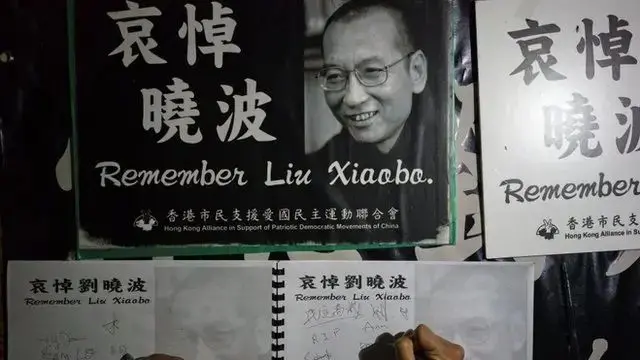 哀悼
曉波
Remember Liu Xiaobo.
香港市民支援愛國民主運動聯合會
Hong Kong Alliance in Support of Patriotic Democratic Movements of China
哀悼
曉波
Remember Liu
香港市民支援
Hong Kong Alliance in Support of Patri
哀悼劉曉波
Remember Liu Xiaobo
哀悼劉曉波
Remember Liu Xiaobo
R.I.P
Ann